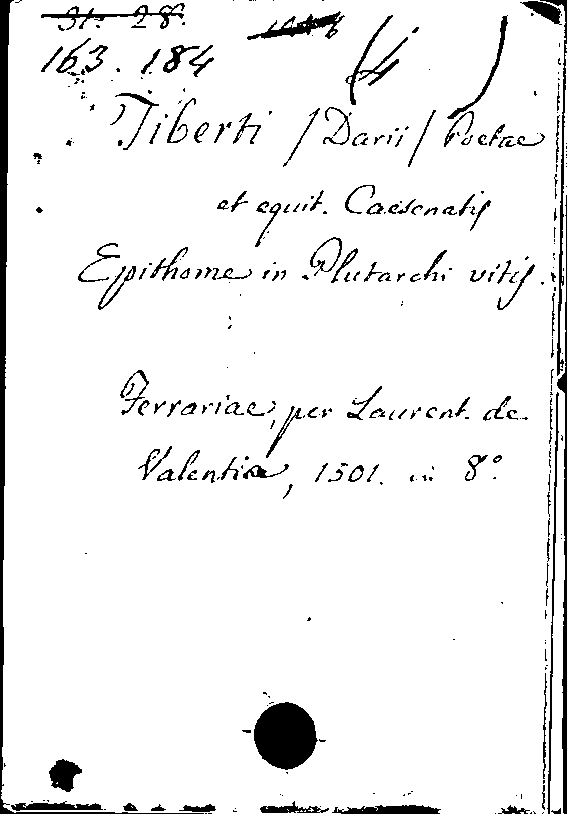 31. 28.
163. 184 (4)
Tiberti /Darii/ Poetae
et equit. Caesenatis
Epithome in Plutarchi vitis.
Ferrariae, per Laurent. de
Valentia, 1501. in 8°.